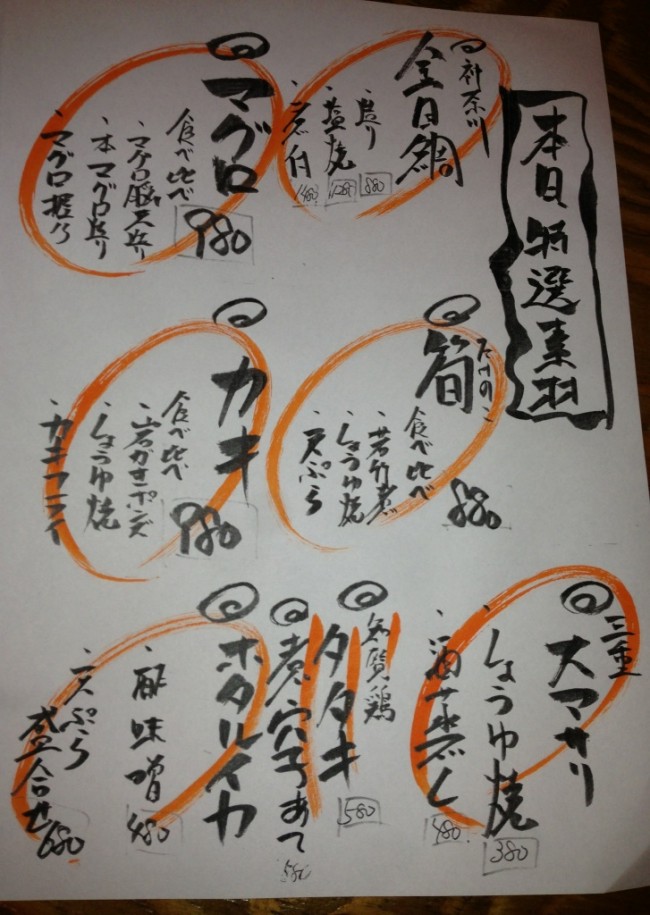 本日特選素材
神奈川
金目鯛
・造り 880
・塩焼 1280
・煮付 1480
マグロ
食べ比べ 980
・マグロ脳天造り
・本マグロ造り
・マグロ握り
たけのこ
筍
食べ比べ 880
・若竹煮
・しょうゆ焼
・天ぷら
カキ
食べ比べ 980
・岩ガキポンズ
・しょうゆ焼
・カキフライ
三重
大アサリ
・しょうゆ焼 380
・酒蒸し 480
知覧鶏
タタキ 580
煮穴子あて
ホタルイカ
・酢味噌 480
・天ぷら
盛合せ 680